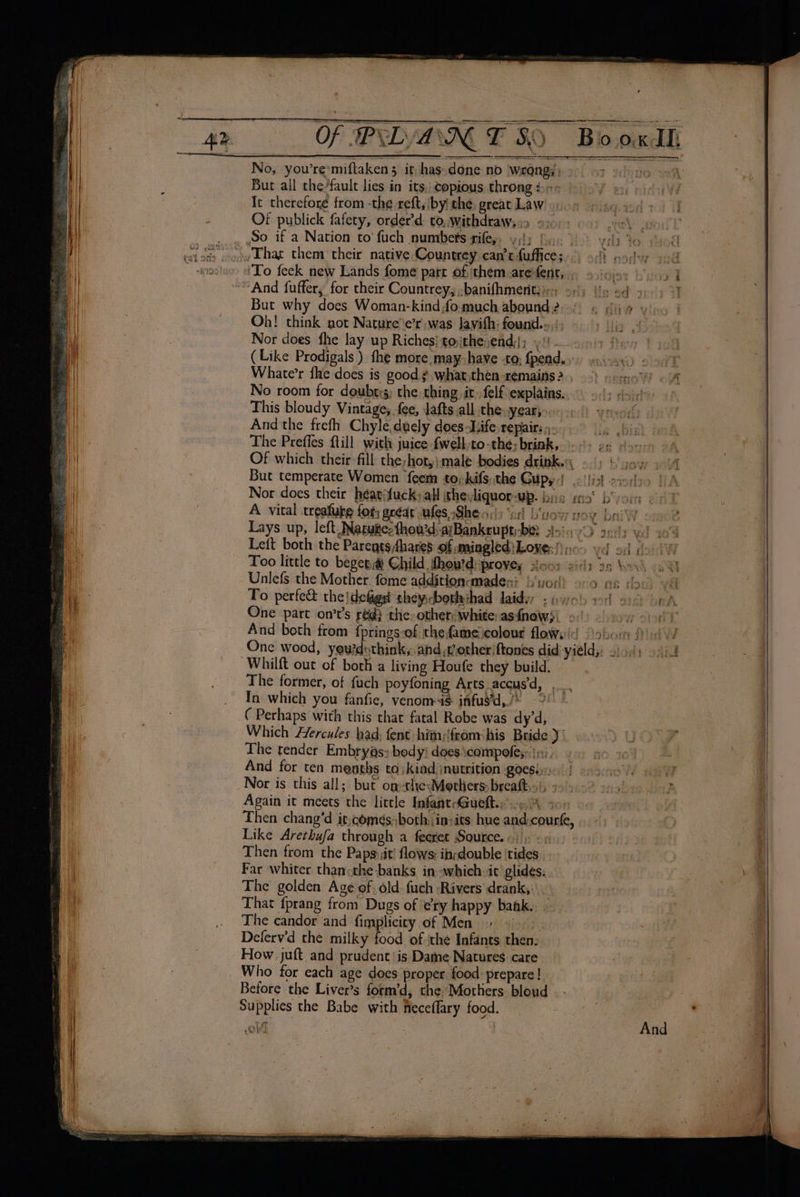 42 Of PLANTS. Book II.
No, you're miſtaken; it has done no wrong;
But all the fault lies in its copious throng:
It therefore from the reſt, by the great Law
Of publick ſafety, order'd to withdraw,
So if a Nation to ſuch numbers riſe,
That them their native Countrey can't ſuffice;
To ſeek new Lands ſome part of them are ſent,
And ſuffer, for their Countrey, baniſhment.
But why does Woman-kind ſo much abound?
Oh! think not Nature e'r was laviſh found.
Nor does ſhe lay up Riches to the end,
(Like Prodigals) ſhe more may have to ſpend.
Whate'r ſhe does is good; what then remains?
No room for doubts; the thing it ſelf explains.
This bloudy Vintage, ſee, laſts all the year,
And the freſh Chyle duely does Life repair.
The Preſſes ſtill with juice ſwell to the brink,
Of which their fill the hot, male bodies drink.
But temperate Women ſeem to kiſs the Cup,
Nor does their heat ſuck all the liquor up.
A vital treaſure for great uſes, She
Lays up, left Nature ſhou'd a Bankrupt be:
Left both the Parents ſhares of mingled Love
Too little to beget a Child ſhou'd prove,
Unleſs the Mother ſome addition made
To perfect the deſign they both had laid
One part on't's red; the other white as ſnow,
And both from ſprings of the ſame colour flow.
One wood, you'd think, and t'other ſtones did yield,
Whilſt out of both a living Houſe they build.
The former, of ſuch poyſoning Arts accus'd,
In which you fanſie, venom is infus'd,
(Perhaps with this that fatal Robe was dy'd,
Which Hercules had ſent him from his Bride)
The tender Embryos body does compoſe,
And for ten months to kind nutrition goes.
Nor is this all; but on the Mothers breaſt
Again it meets the little Infant-Gueſt.
Then chang'd it comes both in its hue and courſe,
Like Arethuſa through a ſecret Source.
Then from the Paps it flows in double tides
Far whiter than the banks in which it glides.
The golden Age of old ſuch Rivers drank,
That ſprang from Dugs of e'ry happy bank.
The candor and ſimplicity of Men
Deſerv'd the milky food of the Infants then.
How juſt and prudent is Dame Natures care
Who for each age does proper food prepare!
Before the Liver's form'd, the Mothers bloud
Supplies the Babe with neceſſary food.
And